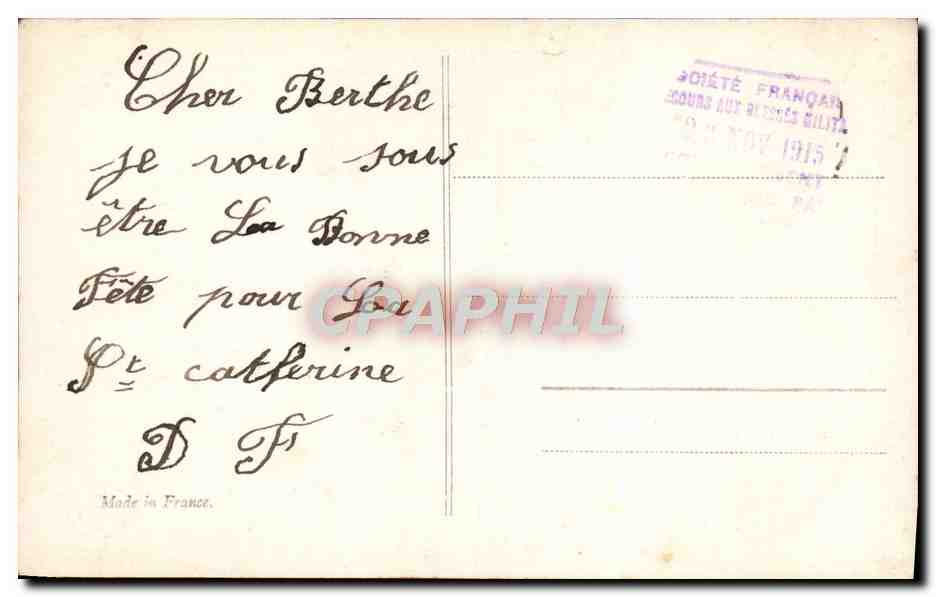 Cher Berthe
je vous sous
être La Bonne
Fête pour La
St catherine
D F
Made in France.
OCIÉTÉ FRANÇAI
ECOURS AUX BLESSÉS MILITA
NOV 1915
CPAPHIL